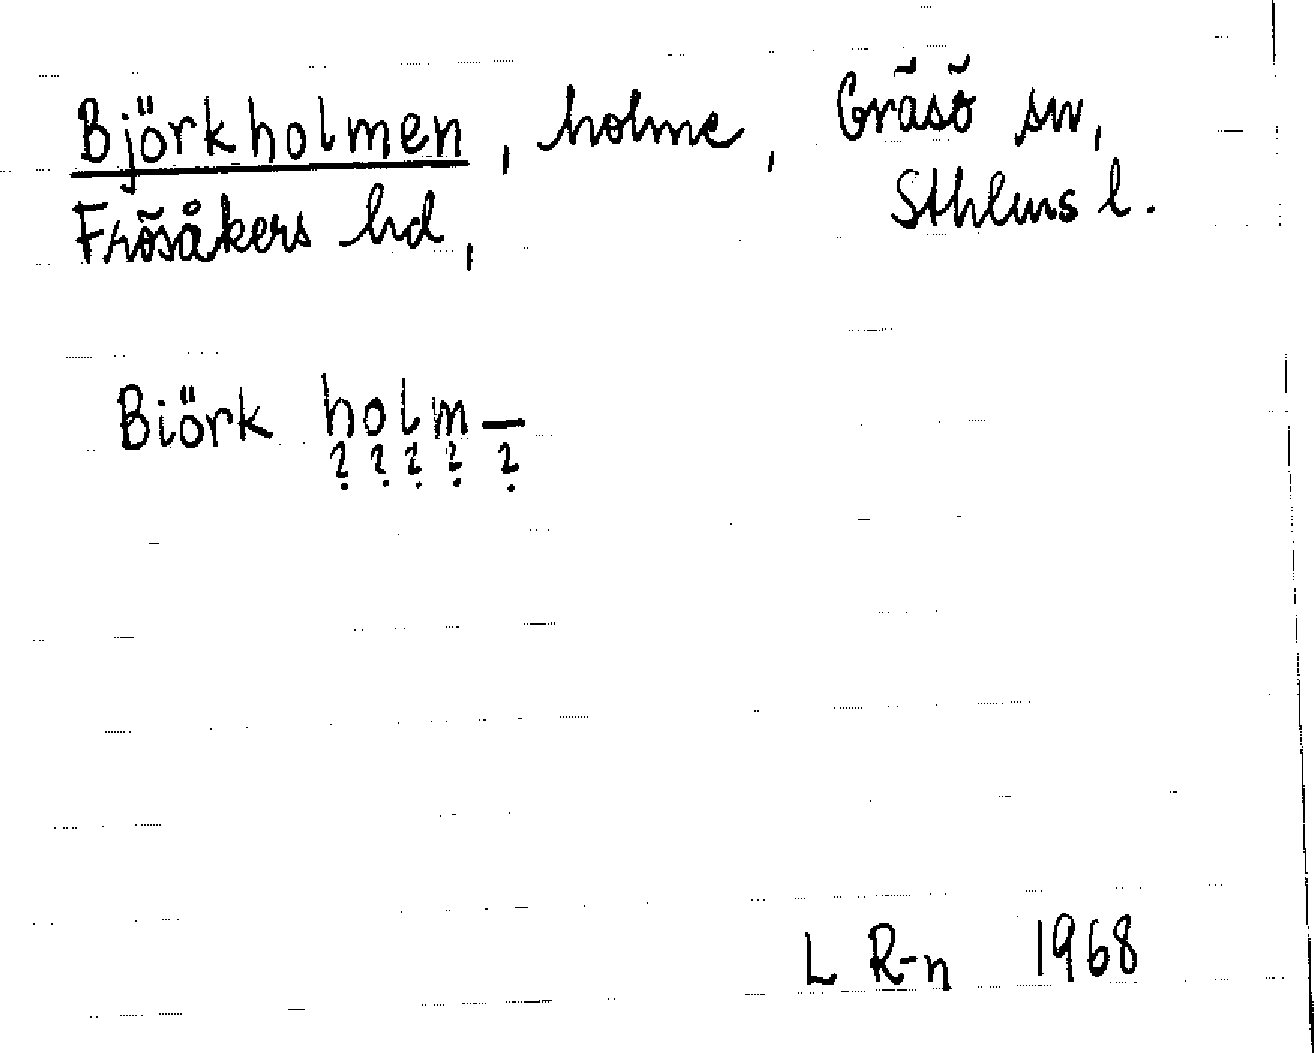 Björkholmen, holme, Gräsö sn,
Frösåkers hd, Sthlms l.
Biörk holm—
? ? ? ? ?
L R-n 1968